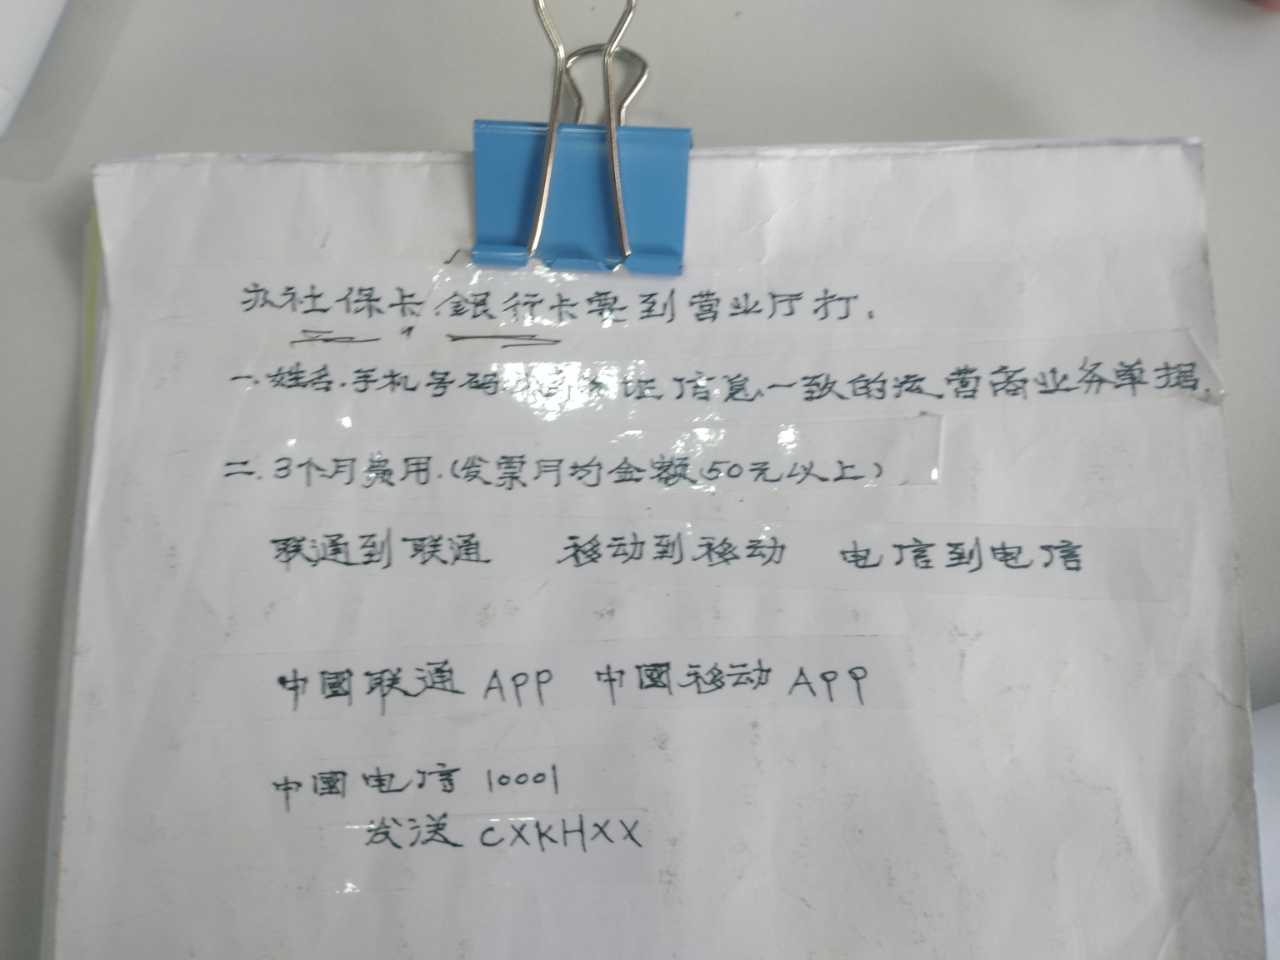 办社保卡.銀行卡要到营业厅打.
一.姓名.手机号码证信息一致的运营商业务单据.
二.3个月费用.(发票月均金额50元以上)
联通到联通 移动到移动 电信到电信
中國联通APP 中國移动APP
中國电信10001
发送CXKHXX